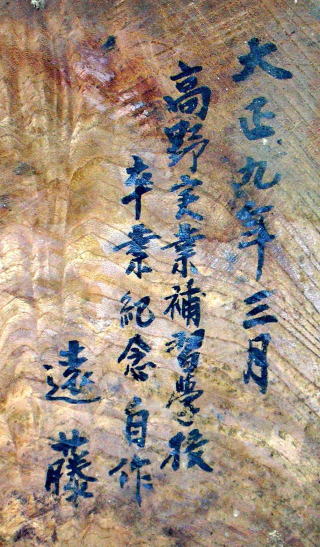 大正九年三月
高野実業補習學校
卒業紀念自作
遠藤